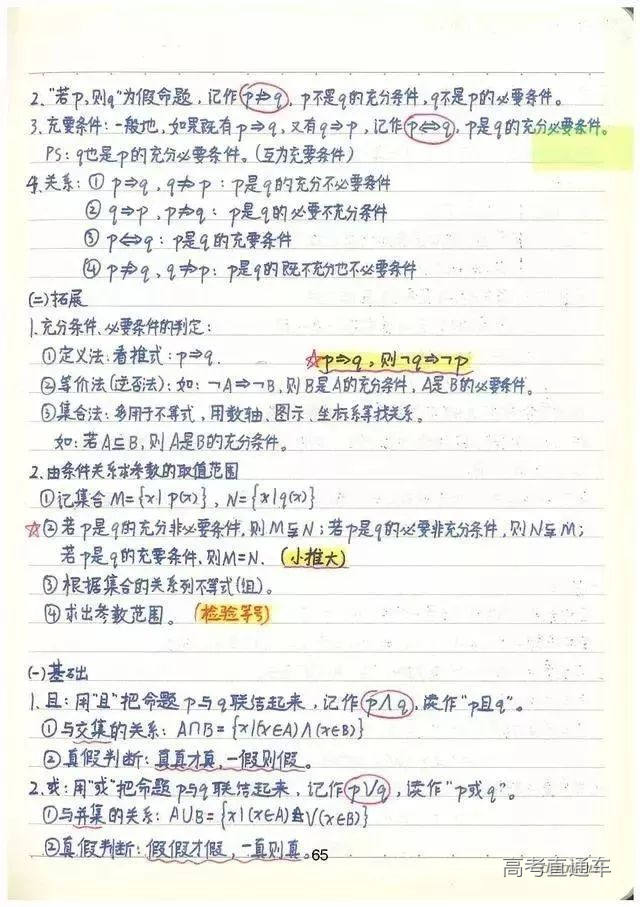 2. "若p,则q"为假命题,记作p⇏q, p不是q的充分条件,q不是p的必要条件。
3. 充要条件:一般地,如果既有p⇒q,又有q⇒p,记作p⇔q,p是q的充分必要条件。
PS: q也是p的充分必要条件。(互为充要条件)
4. 关系:① p⇒q, q⇏p:p是q的充分不必要条件
② q⇒p, p⇏q:p是q的必要不充分条件
③ p⇔q:p是q的充要条件
④ p⇏q, q⇏p:p是q的既不充分也不必要条件
(二)拓展
1. 充分条件、必要条件的判定:
①定义法:看推式:p⇒q. ☆p⇒q,则¬q⇒¬p
②等价法(逆否法):如:¬A⇒¬B,则B是A的充分条件,A是B的必要条件。
③集合法:多用于不等式,用数轴、图示、坐标系等找关系。
如:若A⊆B,则A是B的充分条件。
2. 由条件关系求参数的取值范围
①记集合M={x|p(x)},N={x|q(x)}
☆②若p是q的充分非必要条件,则M⫋N;若p是q的必要非充分条件,则N⫋M;
若p是q的充要条件,则M=N. (小推大)
③根据集合的关系列不等式(组)。
④求出参数范围。(检验等号)
(一)基础
1. 且:用"且"把命题p与q联结起来,记作p∧q,读作"p且q"。
①与交集的关系:A∩B={x|(x∈A)∧(x∈B)}
②真假判断:真真才真,一假则假。
2. 或:用"或"把命题p与q联结起来,记作p∨q,读作"p或q"。
①与并集的关系:A∪B={x|(x∈A)∨(x∈B)}
②真假判断:假假才假,一真则真。
65
高考直通车